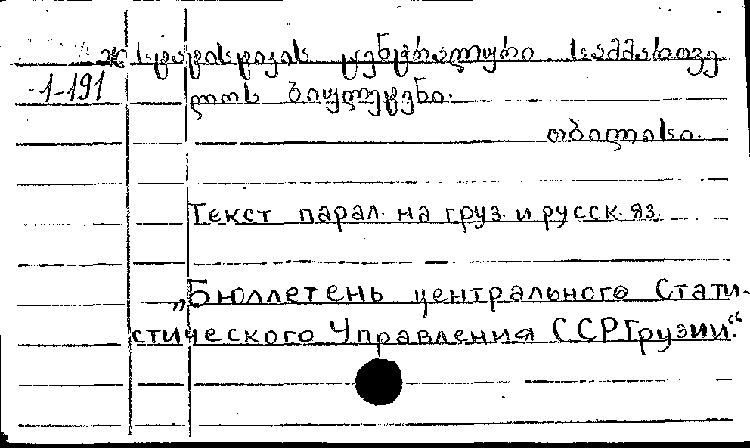 სტატისტიკის ცენტრალური სამმართვე
1-191 ლოს ბიულეტენი.
თბილისი.
Текст парал. на груз. и русск. яз.
„Бюллетень центрального Стати-
стического Управления ССР Грузии.“